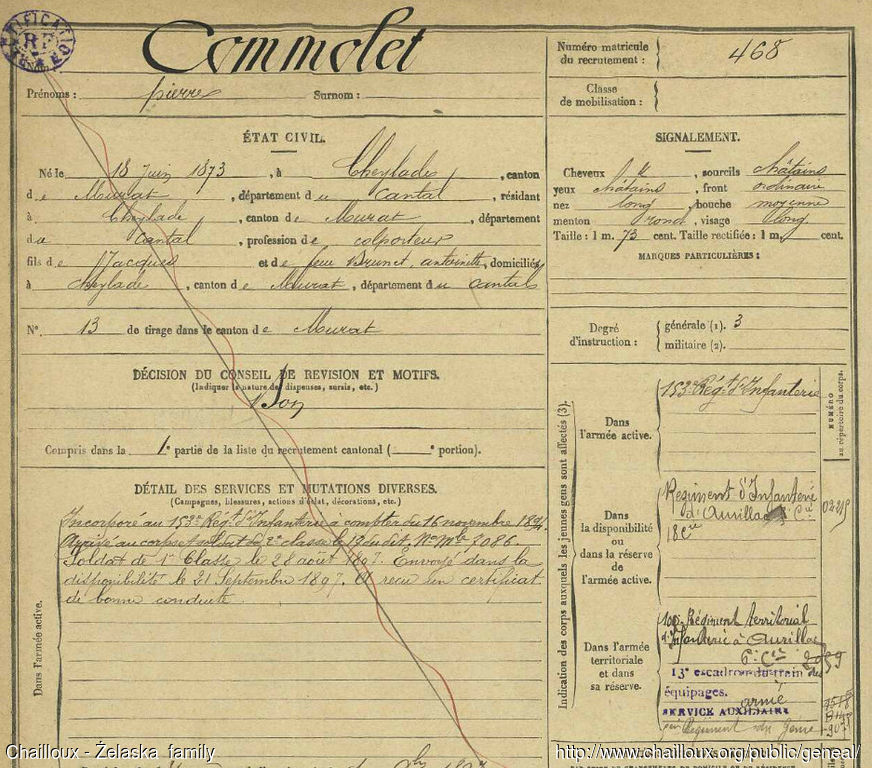 Commolet
Prénoms : pierre Surnom :
Numéro matricule du recrutement : 468
Classe de mobilisation :
ÉTAT CIVIL.
Né le 18 Juin 1873, à Cheylade, canton
de Murat, département du Cantal, résidant
à Cheylade, canton de Murat, département
du Cantal, profession de colporteur
fils de Jacques et de feue Brunet, antoinette, domiciliés
à Cheylade, canton de Murat, département du Cantal
N° 13 de tirage dans le canton de Murat
SIGNALEMENT.
Cheveux, sourcils châtains
yeux châtains, front ordinaire
nez long, bouche moyenne
menton rond, visage long
Taille : 1 m. 73 cent. Taille rectifiée : 1 m. cent.
MARQUES PARTICULIÈRES :
Degré d'instruction : générale (1). 3
militaire (2).
DÉCISION DU CONSEIL DE REVISION ET MOTIFS.
(Indiquer la nature des dispenses, sursis, etc.)
Bon
Compris dans la 1e partie de la liste du recrutement cantonal ( e portion).
DÉTAIL DES SERVICES ET MUTATIONS DIVERSES.
(Campagnes, blessures, actions d'éclat, décorations, etc.)
Incorporé au 153e Régt d'Infanterie à compter du 16 novembre 1894.
Arrivé au corps et soldat de 2e classe le 12 du dit, No Mle 2086.
Soldat de 1re Classe, le 28 août 1897. Envoyé dans la
disponibilité le 21 Septembre 1897. A reçu un certificat
de bonne conduite
Dans l'armée active.
Indication des corps auxquels les jeunes gens sont affectés (3).
NUMÉRO au répertoire du corps.
Dans l'armée active.
153e Régt d'Infanterie
Dans la disponibilité ou dans la réserve de l'armée active.
Régiment d'Infanterie
d'Aurillac
Dans l'armée territoriale et dans sa réserve.
100e Régiment territorial
d'Infanterie à Aurillac
13e escadron du train des
équipages.
armé
SERVICE AUXILIAIRE
Régiment du Génie
Chailloux - Żelaska family
http://www.chailloux.org/public/geneal/